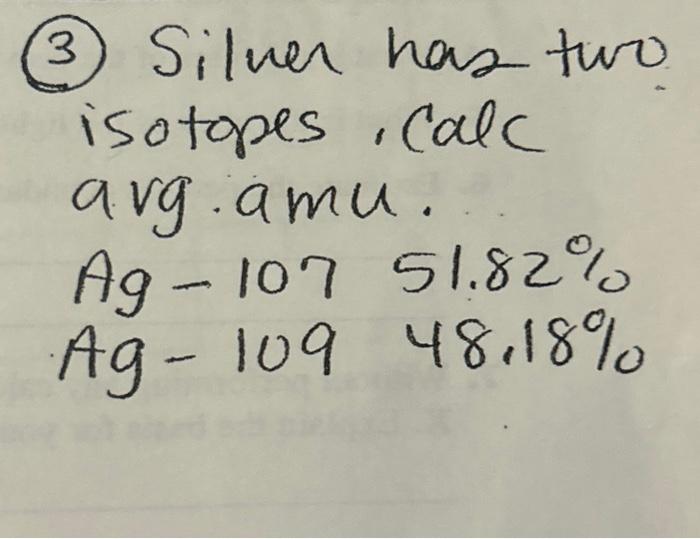 ③ Silver has two
isotopes, Calc
avg. amu.
Ag - 107 51.82%
Ag - 109 48.18%